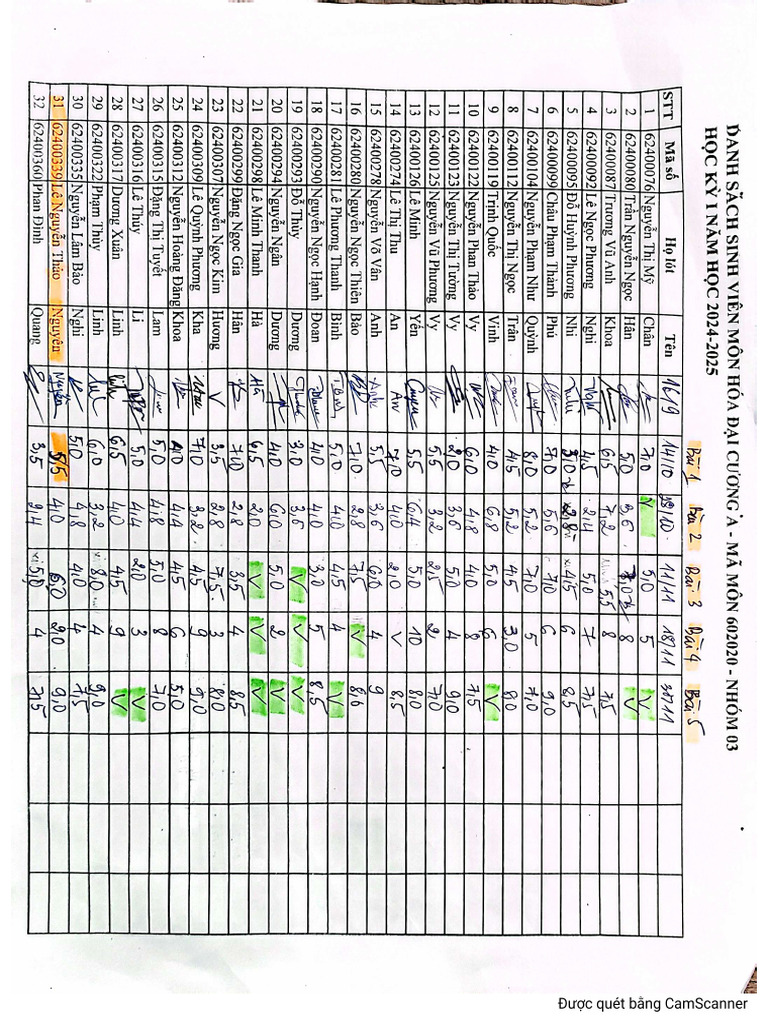 DANH SÁCH SINH VIÊN MÔN HÓA ĐẠI CƯƠNG A - MÃ MÔN 602020 - NHÓM 03
HỌC KỲ I NĂM HỌC 2024-2025
Bài 1 Bài 2 Bài 3 Bài 4 Bài 5
STT Mã số Họ lót Tên 16/9 14/10 11/11 18/11
1 62400076 Nguyễn Thị Mỹ Chân 7,0 V 5,0 5 V
2 62400080 Trần Nguyễn Ngọc Hân 5,0 3,6 8 V
3 62400087 Trương Vũ Anh Khoa 6,5 7,2 5,5 8 7,5
4 62400092 Lê Ngọc Phương Nghi 4,5 2,4 5,0 7 7,5
5 62400095 Đỗ Huỳnh Phương Nhi 2,8 4,5 6 8,5
6 62400099 Châu Phạm Thành Phú 7,0 5,6 7,0 6 9,0
7 62400104 Nguyễn Phạm Như Quỳnh 8,0 5,2 7,0 5 7,0
8 62400112 Nguyễn Thị Ngọc Trân 4,5 5,2 4,5 3,0 8,0
9 62400119 Trịnh Quốc Vinh 4,0 6,8 5,0 6 V
10 62400122 Nguyễn Phan Thảo Vy 6,0 4,8 4,0 8 7,5
11 62400123 Nguyễn Thị Tường Vy 2,0 3,6 5,0 4 9,0
12 62400125 Nguyễn Vũ Phương Vy 5,5 3,2 2,5 2 7,0
13 62400126 Lê Minh Yến 5,5 6,4 5,0 10 8,0
14 62400274 Lê Thị Thu An 7,0 4,0 2,0 V 8,5
15 62400278 Nguyễn Võ Vân Anh 5,5 3,6 6,0 4 9
16 62400280 Nguyễn Ngọc Thiên Bảo 7,0 2,8 7,5 V 8,6
17 62400281 Lê Phương Thanh Bình 5,0 4,0 4,5 4 V
18 62400290 Nguyễn Ngọc Hạnh Đoan 4,0 4,0 3,0 5 8,5
19 62400293 Đỗ Thùy Dương 3,0 3,6 V V V
20 62400294 Nguyễn Ngân Dương 4,0 6,0 5,0 2 V
21 62400298 Lê Minh Thanh Hà 6,5 2,0 V V V
22 62400299 Đặng Ngọc Gia Hân 7,0 2,8 3,5 4 8,5
23 62400307 Nguyễn Ngọc Kim Hương V 3,5 2,8 7,5 3 8,0
24 62400309 Lê Quỳnh Phương Kha 7,0 3,2 4,5 9 9,0
25 62400312 Nguyễn Hoàng Đăng Khoa 4,0 4,4 4,5 6 5,0
26 62400315 Đặng Thị Tuyết Lam 5,0 4,8 4,0 8 7,0
27 62400316 Lê Thúy Li 5,0 4,4 2,0 3 V
28 62400317 Dương Xuân Linh 6,5 4,0 4,5 9 V
29 62400322 Phạm Thùy Linh 6,0 3,2 8,0 4 9,0
30 62400335 Nguyễn Lâm Bảo Nghi 5,0 4,8 4,0 4 7,5
31 62400339 Lê Nguyễn Thảo Nguyên Nguyên 5,5 4,0 6,0 2,0 9,0
32 62400360 Phan Đình Quang 3,5 2,4 5,0 4 7,5
Được quét bằng CamScanner